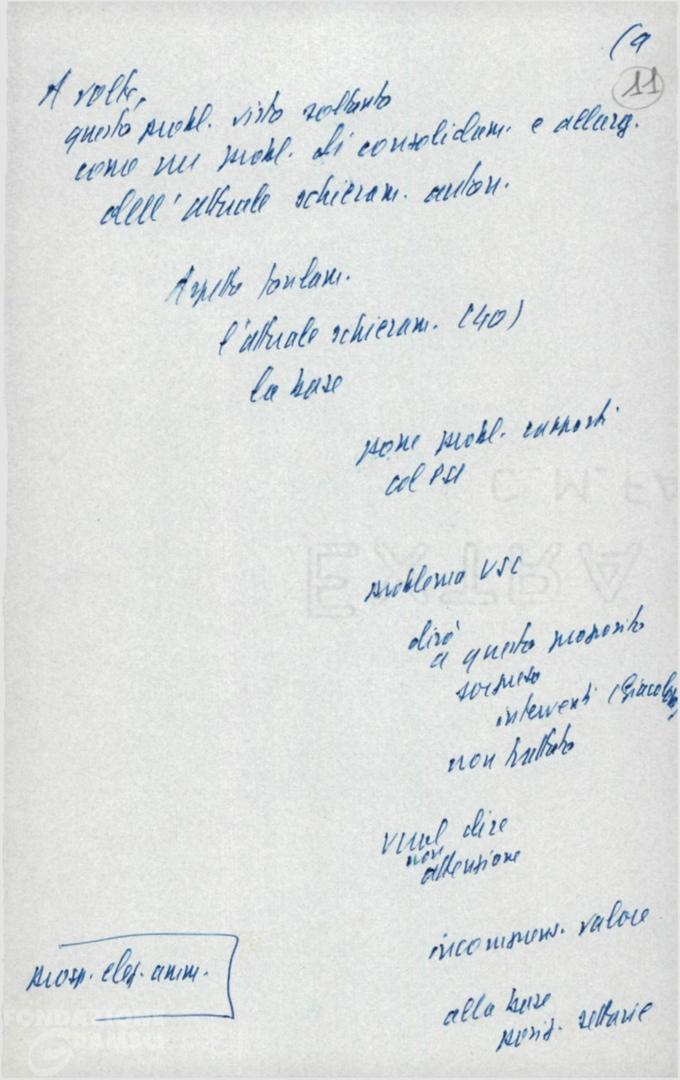 (9
11
A volte,
questo probl. visto soltanto
come un probl. di consolidam. e allarg.
dell'attuale schieram. auton.
Aspetto fondam.
l'attuale schieram. (40)
la base
pone probl. rapporti
col PSI
problema USC
dirò
a questo proposito
sorpreso
interventi (Giacol
non trattato
vuol dire
non
attenzione
incomprens. valore
alla base
posiz. settarie
prosp. elez. amm.
C. M. FA
EXTRA
FONDAZIONE
GRAMSCI